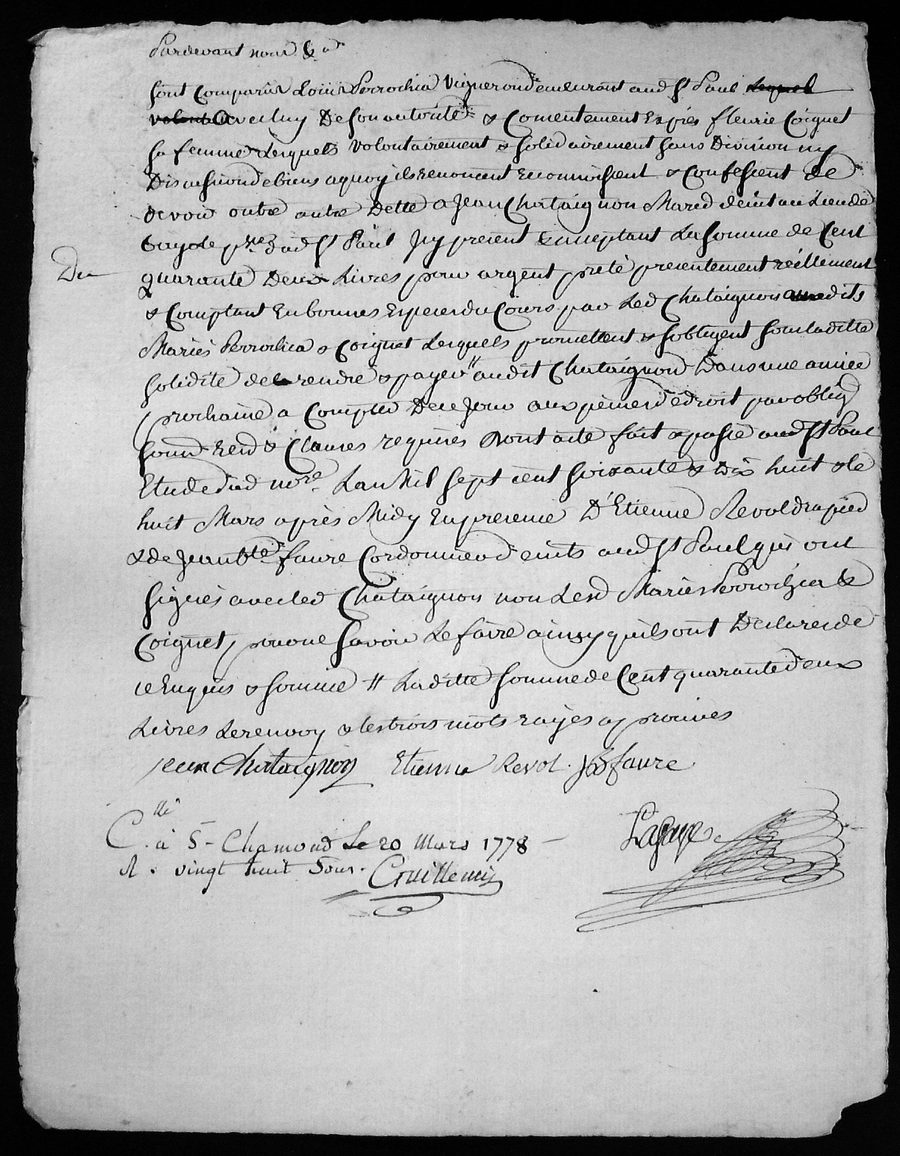 Pardevant nous &a
sont comparus Louis Perrochia Vigneron demeurant aud St Paul Lequel
avec luy De son autorité & Consentement Exprès fleurie Coignet
sa femme Lesquels volontairement & solidairement sans Division ny
Discussion de biens a quoy ils renoncent reconnoissent & Confessent de
devoir outre autre Dette a Jean Chataignon Mared demt au Lieu de
psse dud St Paul Icy present & acceptant La somme de Cent
De
quarante Deux Livres pour argent preté presentement réellement
& Comptant En bonnes Especes du Cours par Led Chataignon auxdits
Mariés Perrochia & Coignet Lesquels promettent & sobligent sous laditte
solidité de le rendre & payer # audit Chataignon Dans une année
prochaine a Compter De ce Jour aux peines de droit par oblig
soum Ren & Clauses requises Dont acte fait & passé aud St Paul
Etude dud nore. Lan Mil sept cent soixante & Dix huit & le
huit Mars après Midy En presence D'Etienne Revol drapied
& de Jean Bte faure Cordonnier demts aud St Paul qui ont
signés avec led Chataignon non Lesd Mariés Perrochia &
Coignet pour ne savoir Le faire ainsy quils ont Declarés de
ce Enquis & sommé # Laditte somme de Cent quarante deux
Livres Le renvoy & les trois mots rayés approuvés
jean Chataignon Etienne Revol. JB faure
C.llé à St Chamond Le 20 Mars 1778
R. vingt huit Sous.